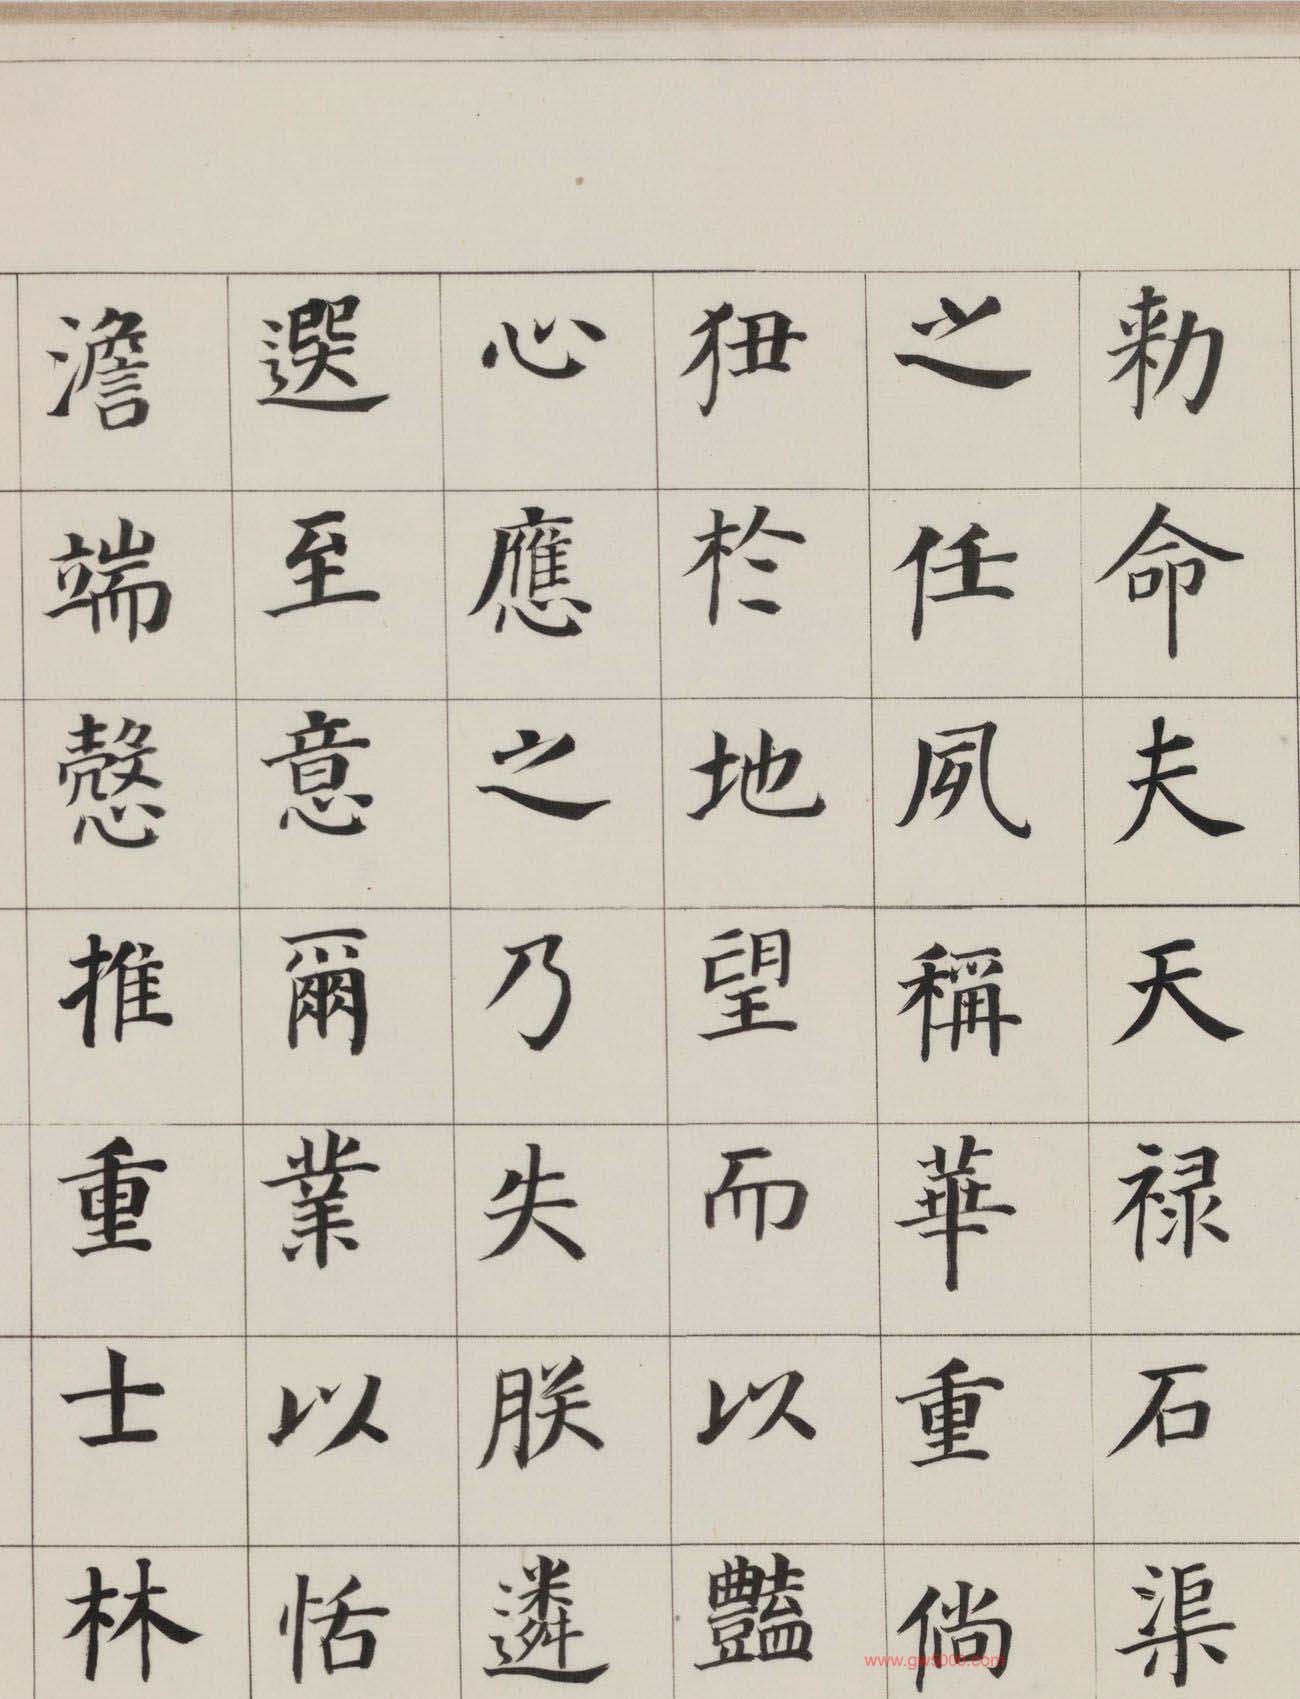 勑命夫天禄石渠
之任夙稱華重倘
狃於地望而以豔
心應之乃失朕遴
選至意爾業以恬
澹端慤推重士林
www.gw5000.com